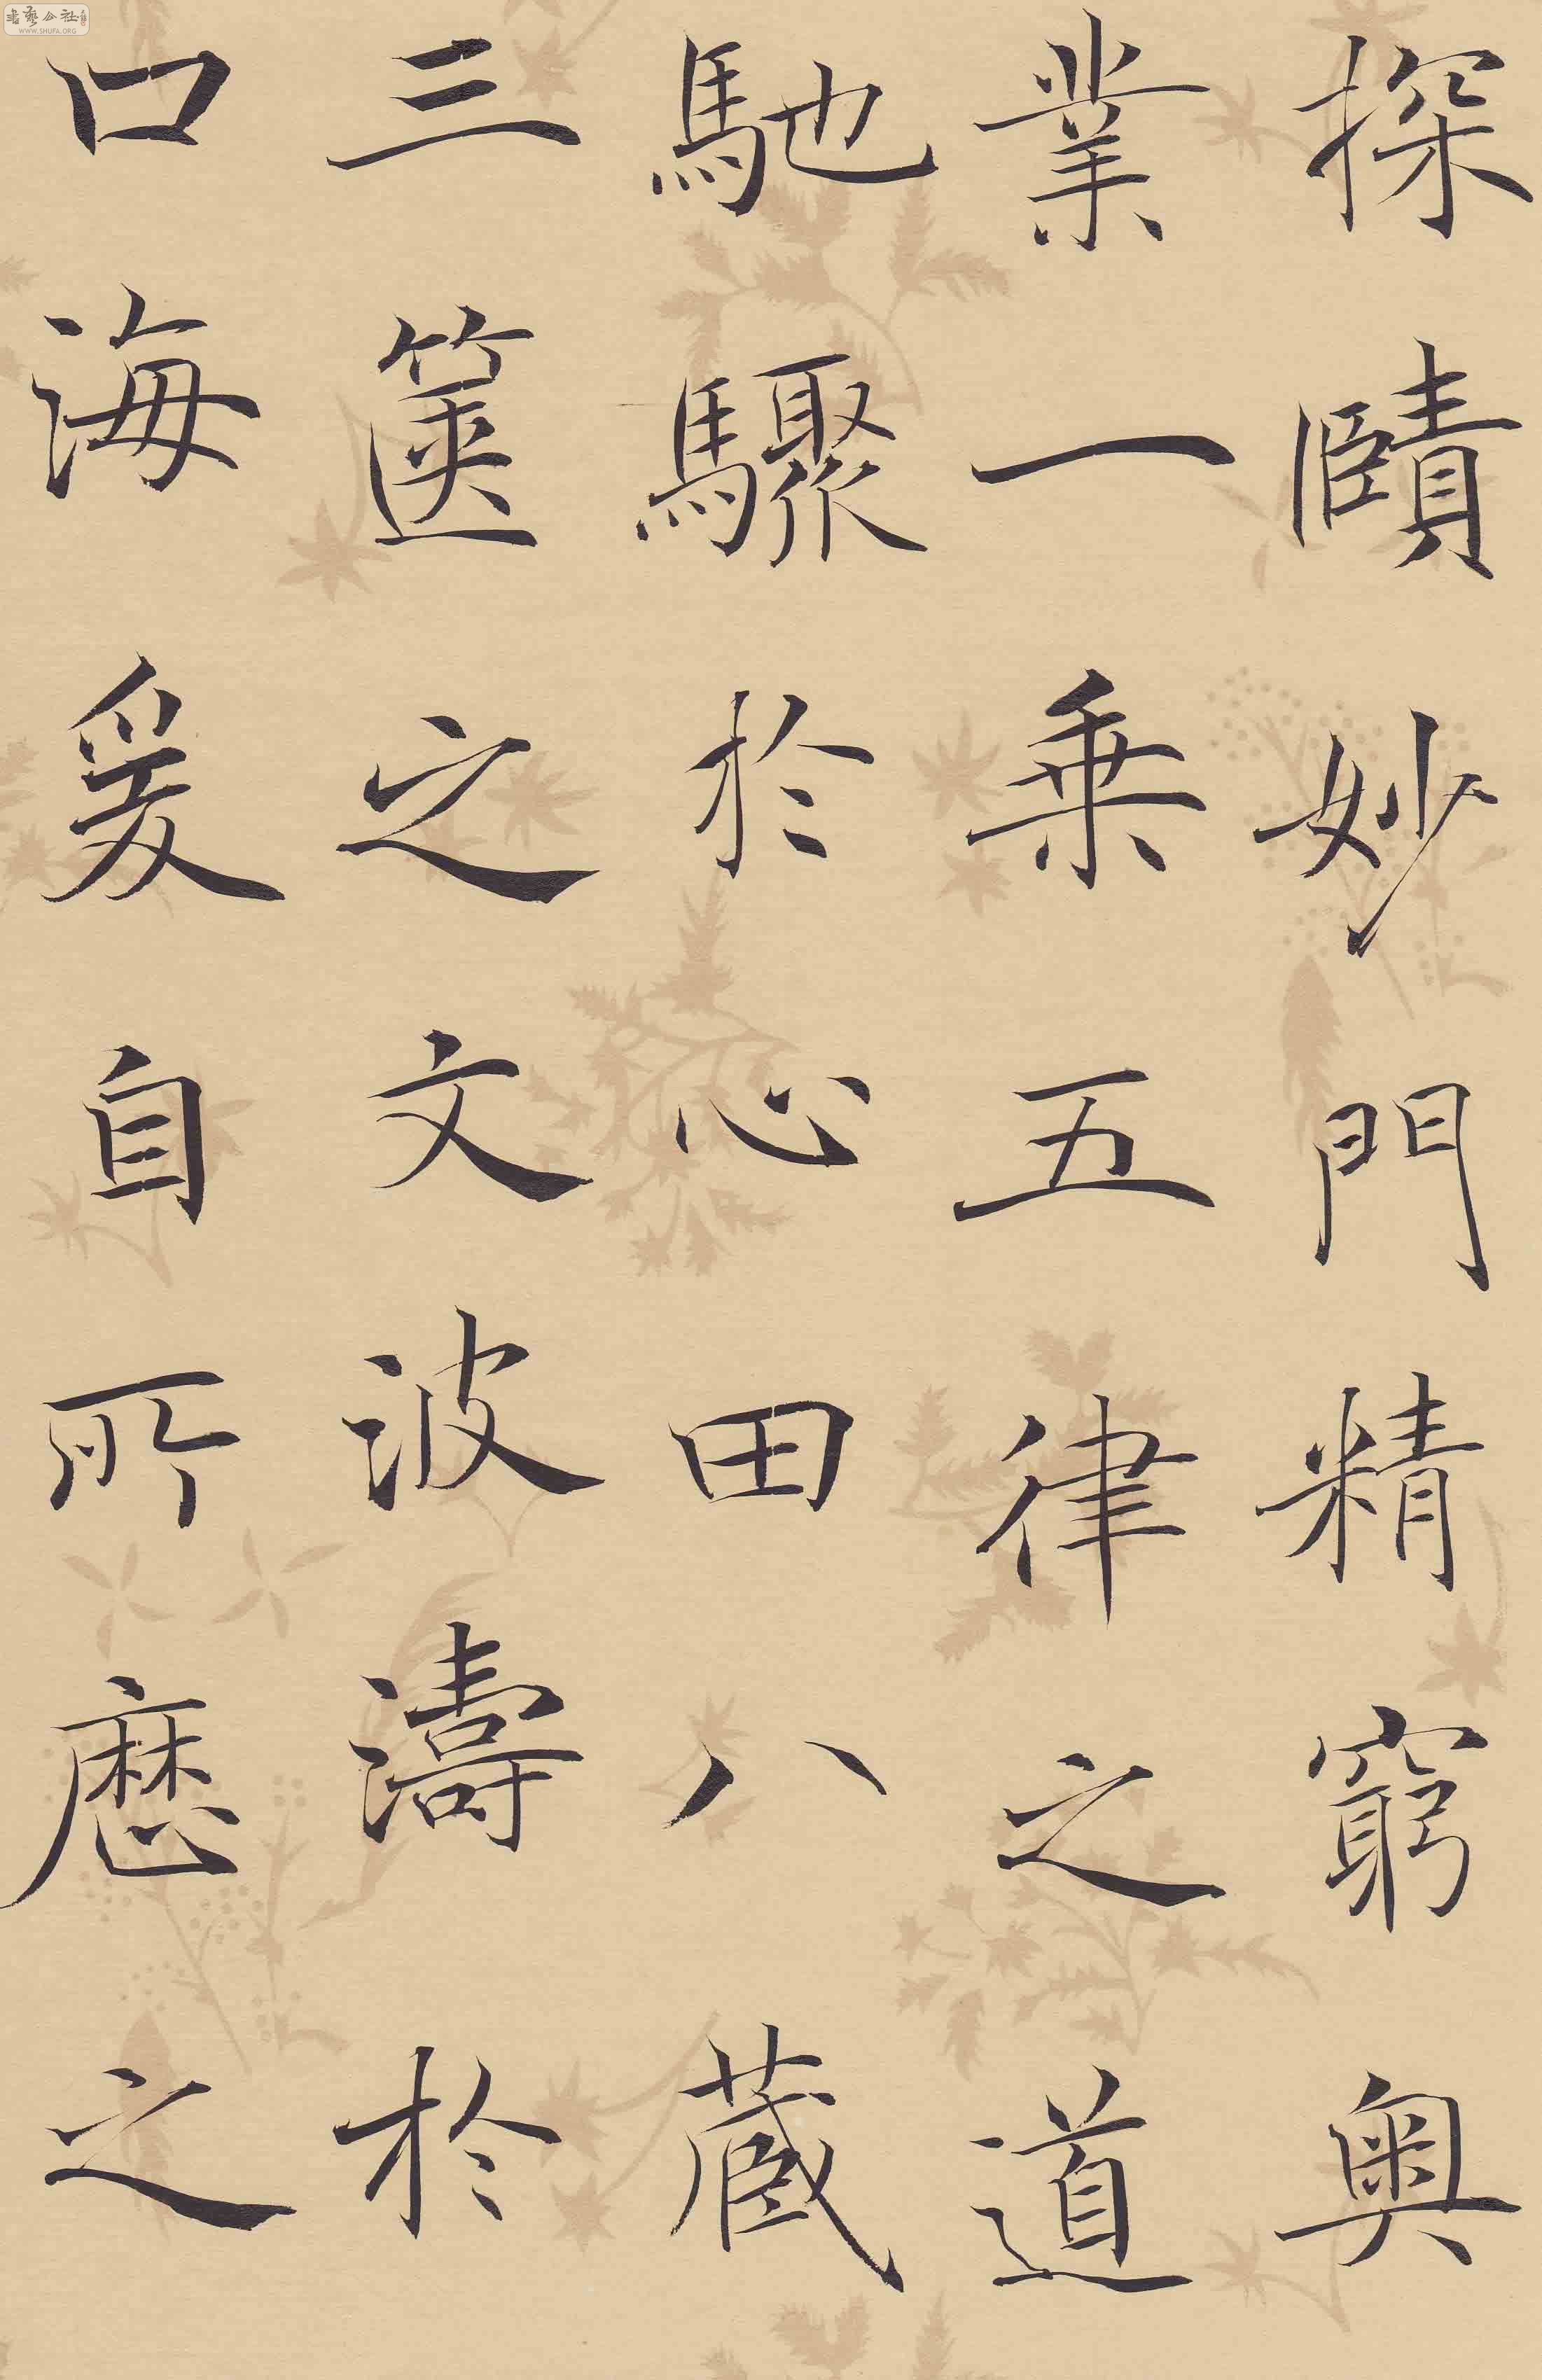 探賾妙門精窮奧
業一乗五律之道
馳驟於心田八蔵
三篋之文波濤於
口海爰自所歷之
書藝公社
WWW.SHUFA.ORG